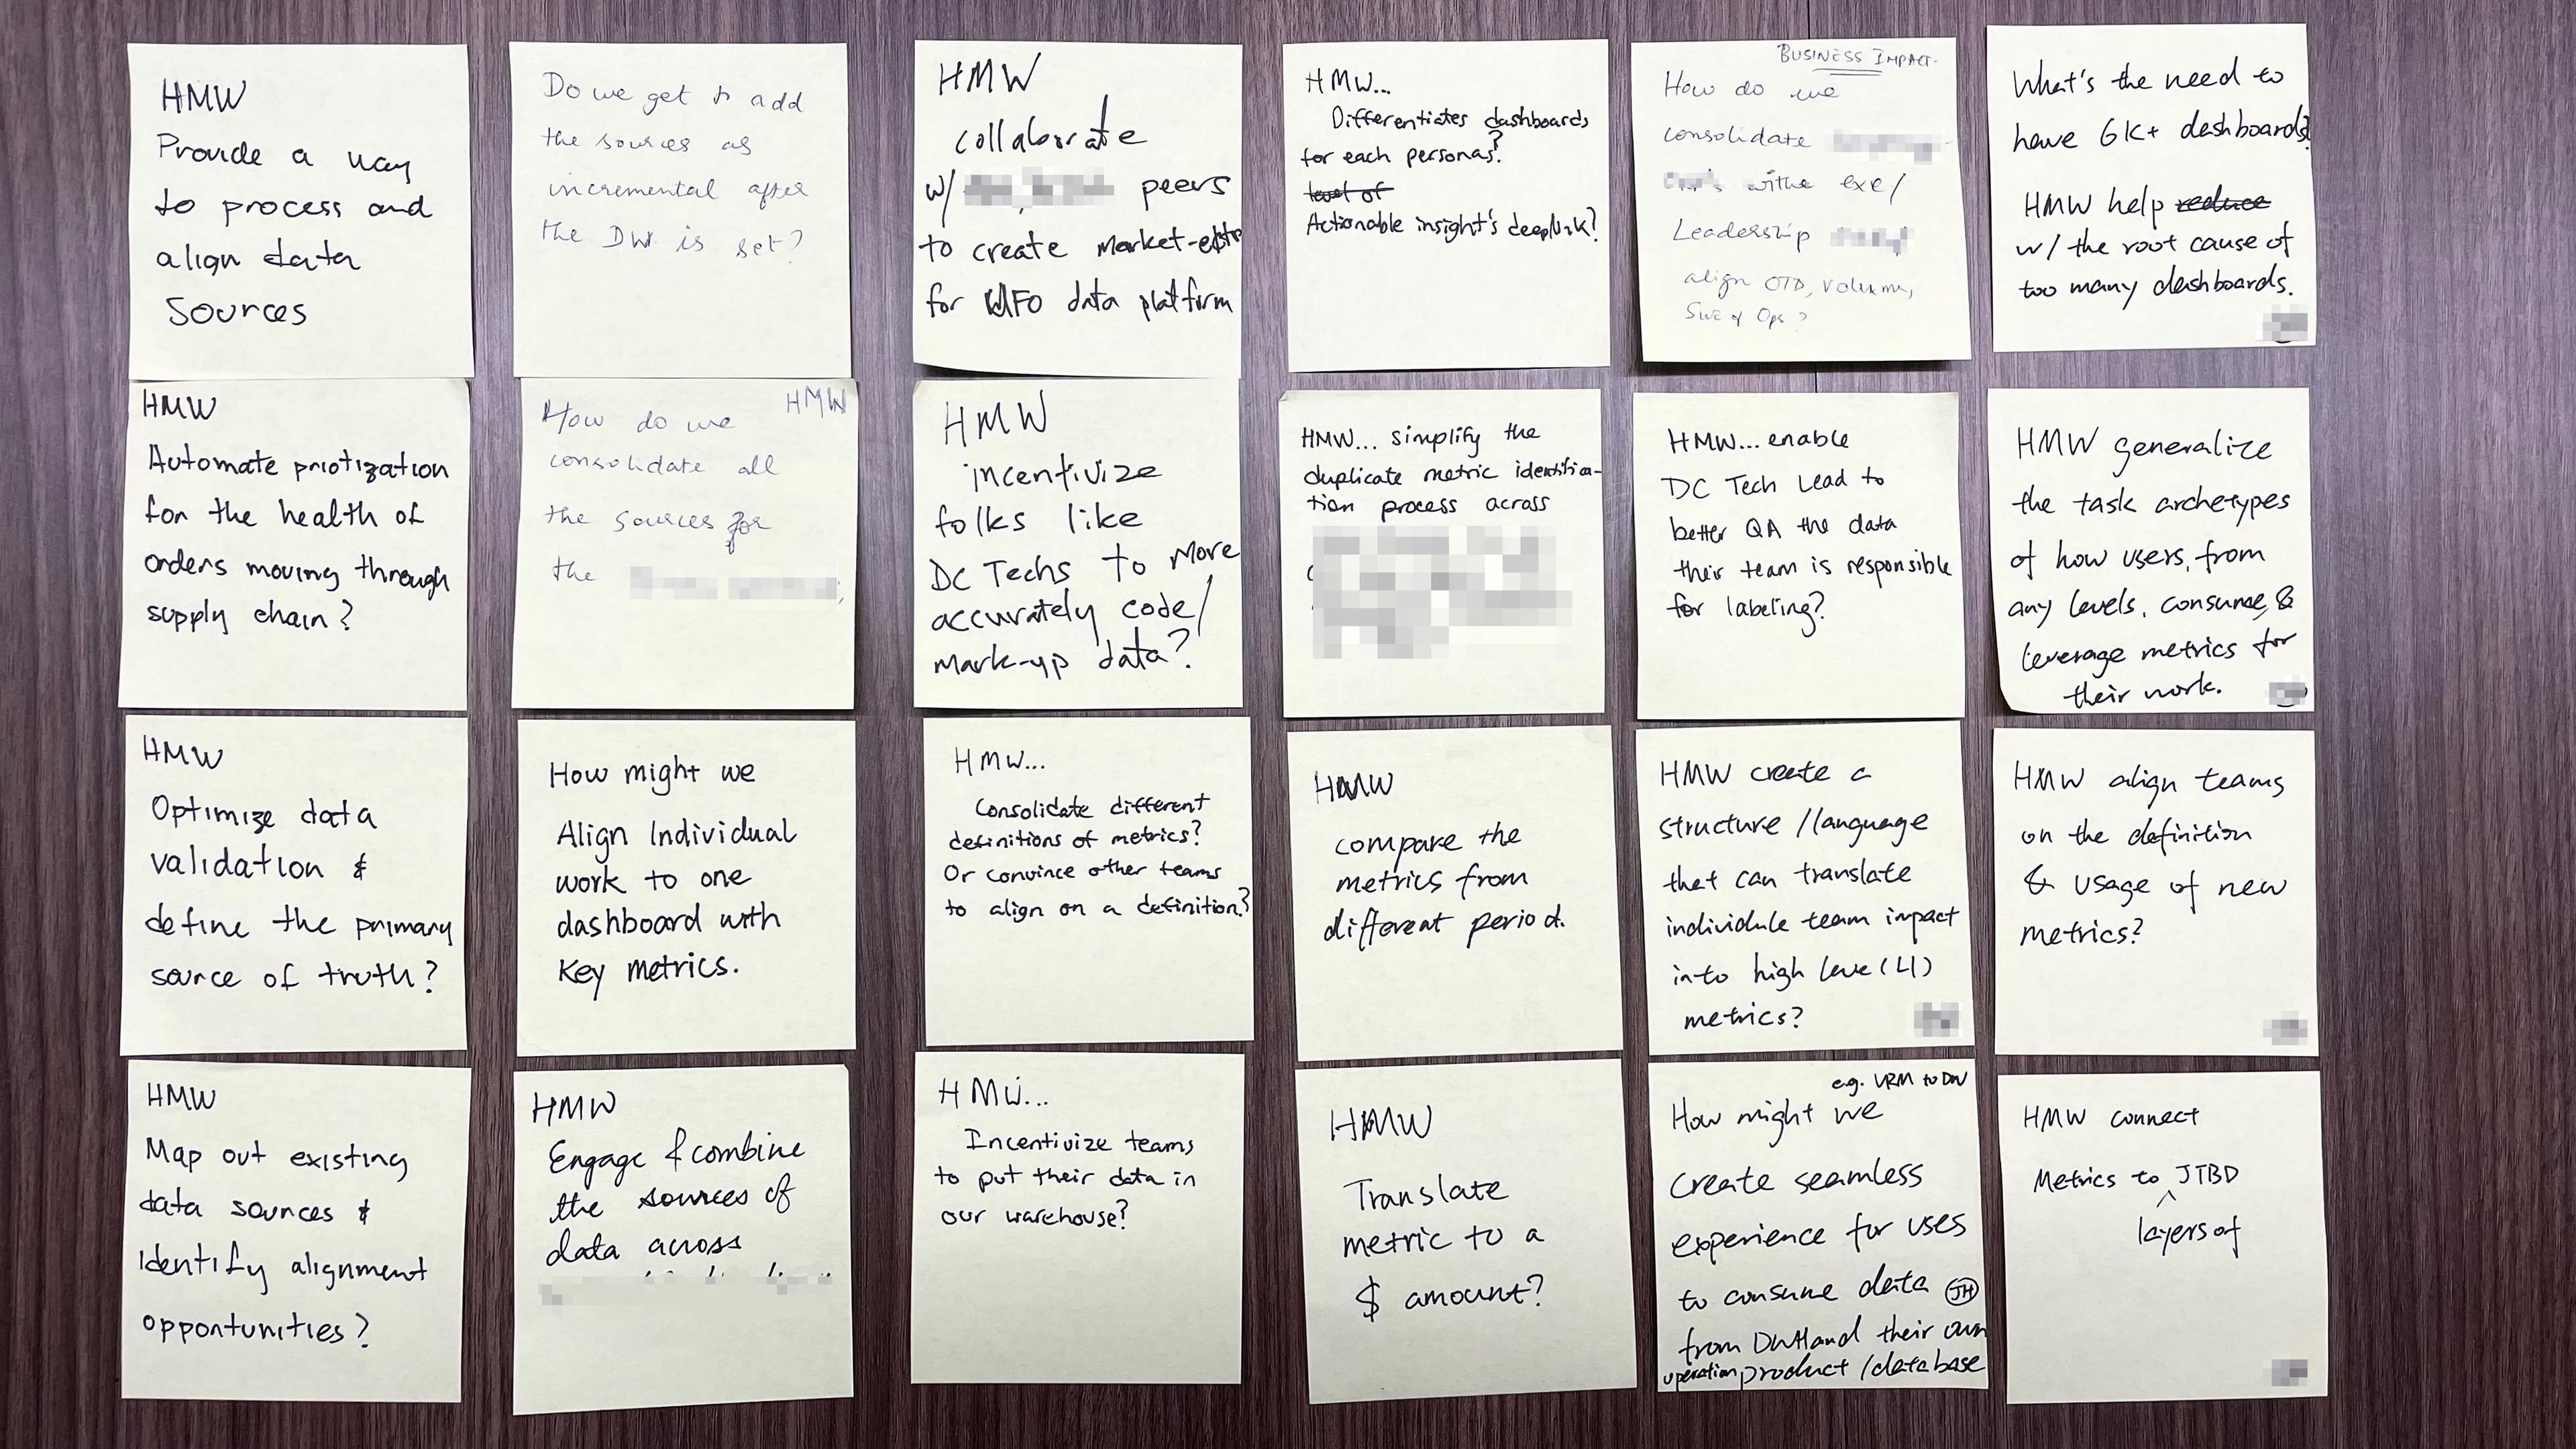 HMW
Provide a way
to process and
align data
Sources
Do we get to add
the sources as
incremental after
the DW is set?
HMW
collaborate
w/ peers
to create market-
for data platform
HMW...
Differentiates dashboards
for each personas?
level of
Actionable insight's deeplink?
BUSINESS IMPACT.
How do we
consolidate
exe/
Leadership
align OTD, volume,
Ops?
What's the need to
have 6K+ dashboards?
HMW help reduce
w/ the root cause of
too many dashboards.
HMW
Automate priotization
for the health of
orders moving through
supply chain?
HMW
How do we
consolidate all
the sources for
the
HMW
incentivize
folks like
DC Techs to more
accurately code/
mark-up data?
HMW... simplify the
duplicate metric identifica-
tion process across
HMW... enable
DC Tech Lead to
better QA the data
their team is responsible
for labeling?
HMW generalize
the task archetypes
of how users, from
any levels, consume, &
leverage metrics for
their work.
HMW
Optimize data
validation &
define the primary
source of truth?
How might we
Align Individual
work to one
dashboard with
Key metrics.
HMW...
Consolidate different
definitions of metrics?
Or convince other teams
to align on a definition?
HMW
compare the
metrics from
different period.
HMW create a
structure /language
that can translate
individule team impact
into high level (L1)
metrics?
HMW align teams
on the definition
& usage of new
metrics?
HMW
Map out existing
data sources &
Identify alignment
opportunities?
HMW
Engage & combine
the sources of
data across
HMW...
Incentivize teams
to put their data in
our warehouse?
HMW
Translate
metric to a
$ amount?
e.g. VRM to DW
How might we
create seamless
experience for uses
to consume data JH
from and their own
operation product /database
HMW connect
Metrics to JTBD
layers of